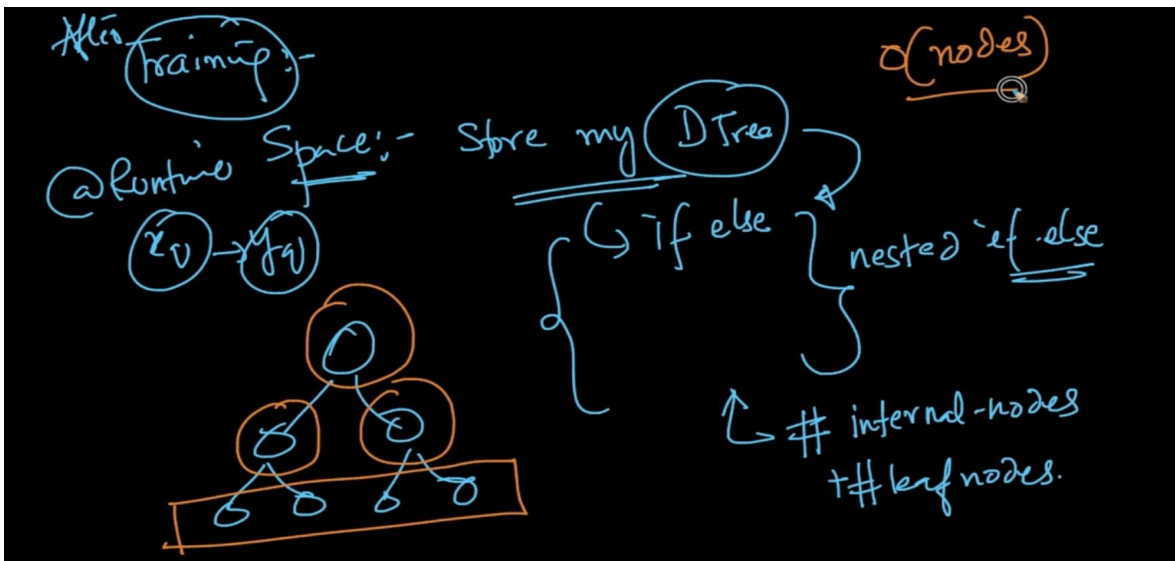 After Training:-
O(nodes)
@Runtime Space:- Store my DTree
xq → yq
if else
nested if else
# internal-nodes
+# leaf nodes.